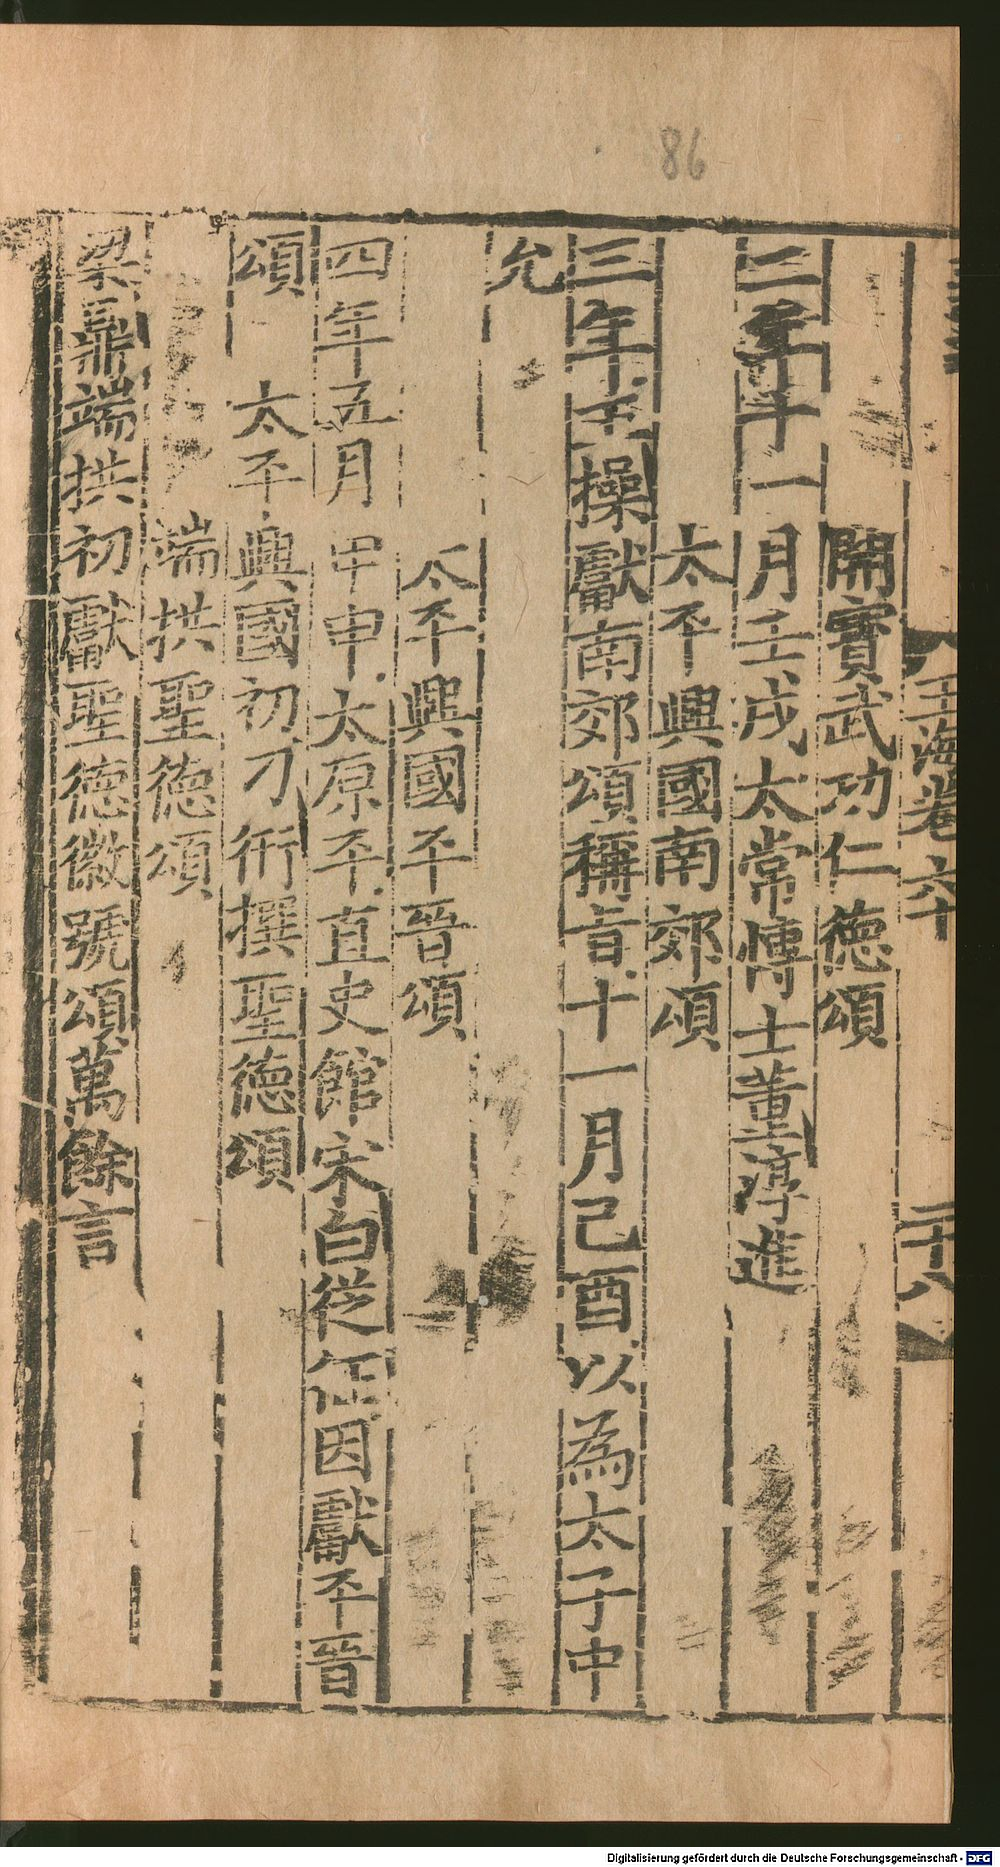 86
玉海卷六十
二十八
開寶武功仁德頌
二年十一月壬戌太常愽士董淳進
太平興國南郊頌
三年王操獻南郊頌稱旨十一月己酉以為太子中
允
太平興國平晉頌
四年五月甲申太原平直史館宋白從征因獻平晉
頌　太平興國初刁衎撰聖德頌
端拱聖德頌
梁鼎端拱初獻聖德徽號頌萬餘言
Digitalisierung gefördert durch die Deutsche Forschungsgemeinschaft - DFG